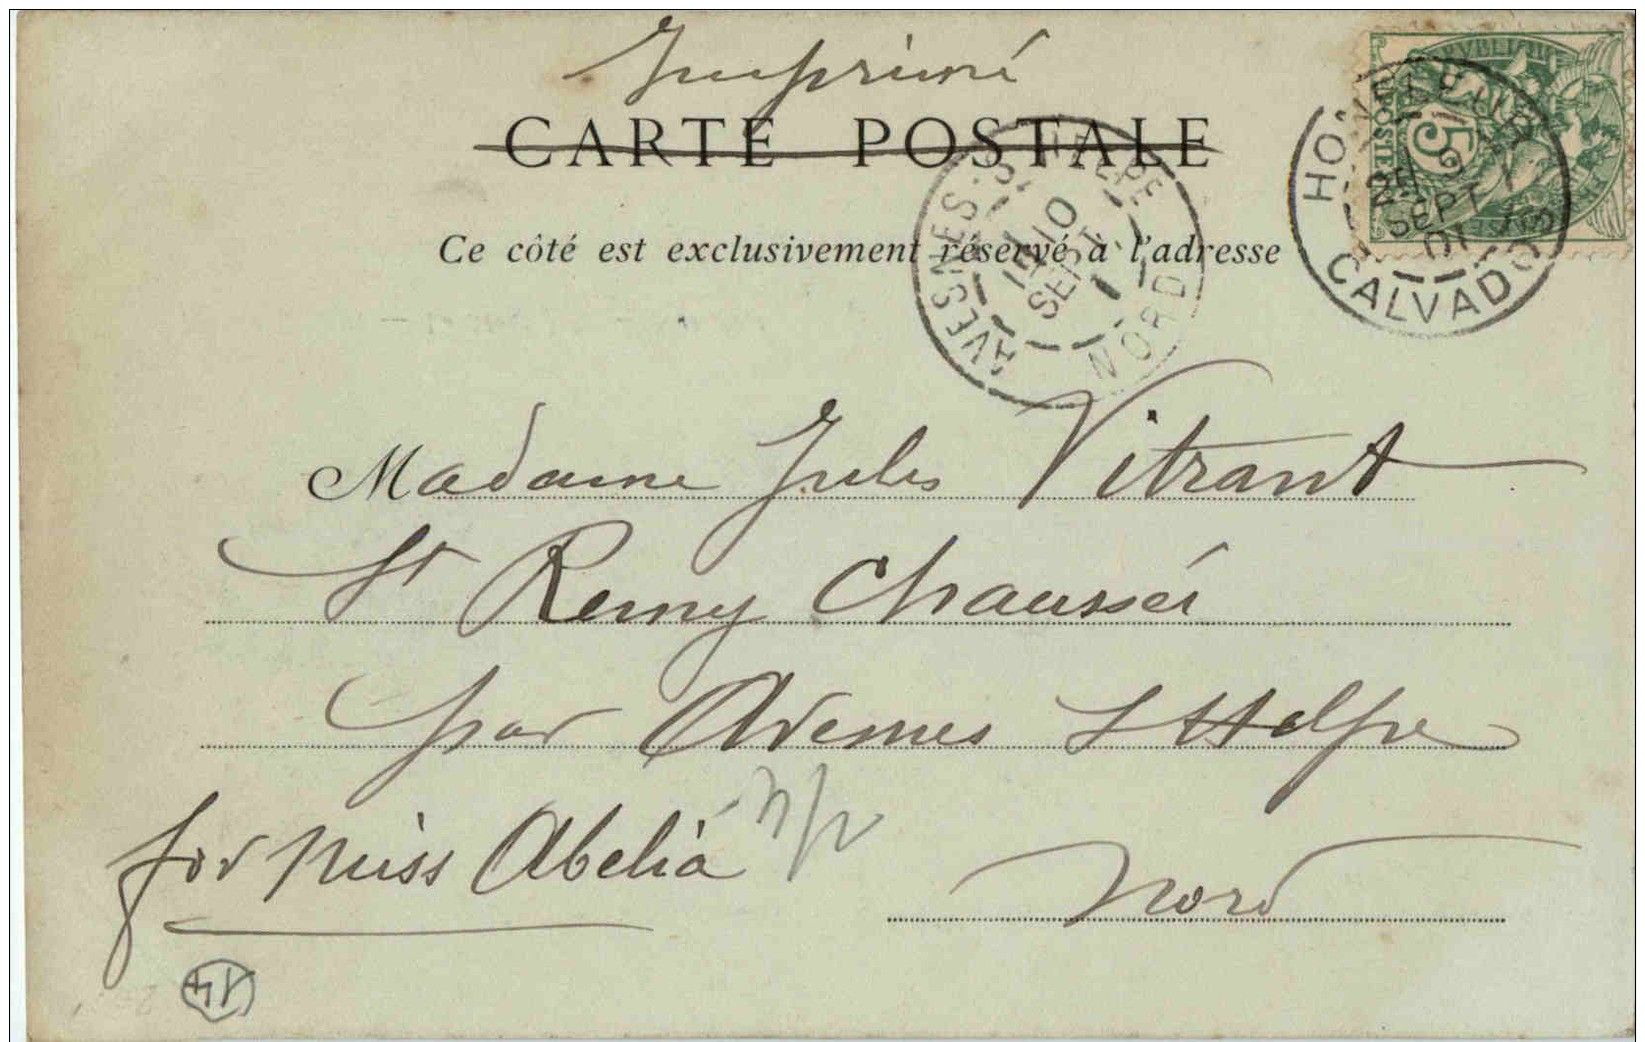 Imprimé
CARTE POSTALE
Ce côté est exclusivement réservé à l'adresse
5
CALVADOS
SEPT
01
AVESNES
10
SEPT
NORD
Madame Jules Vitrant
St Remy Chaussée
par Avesnes s/Helpe
for Miss Abelia
Nord
14